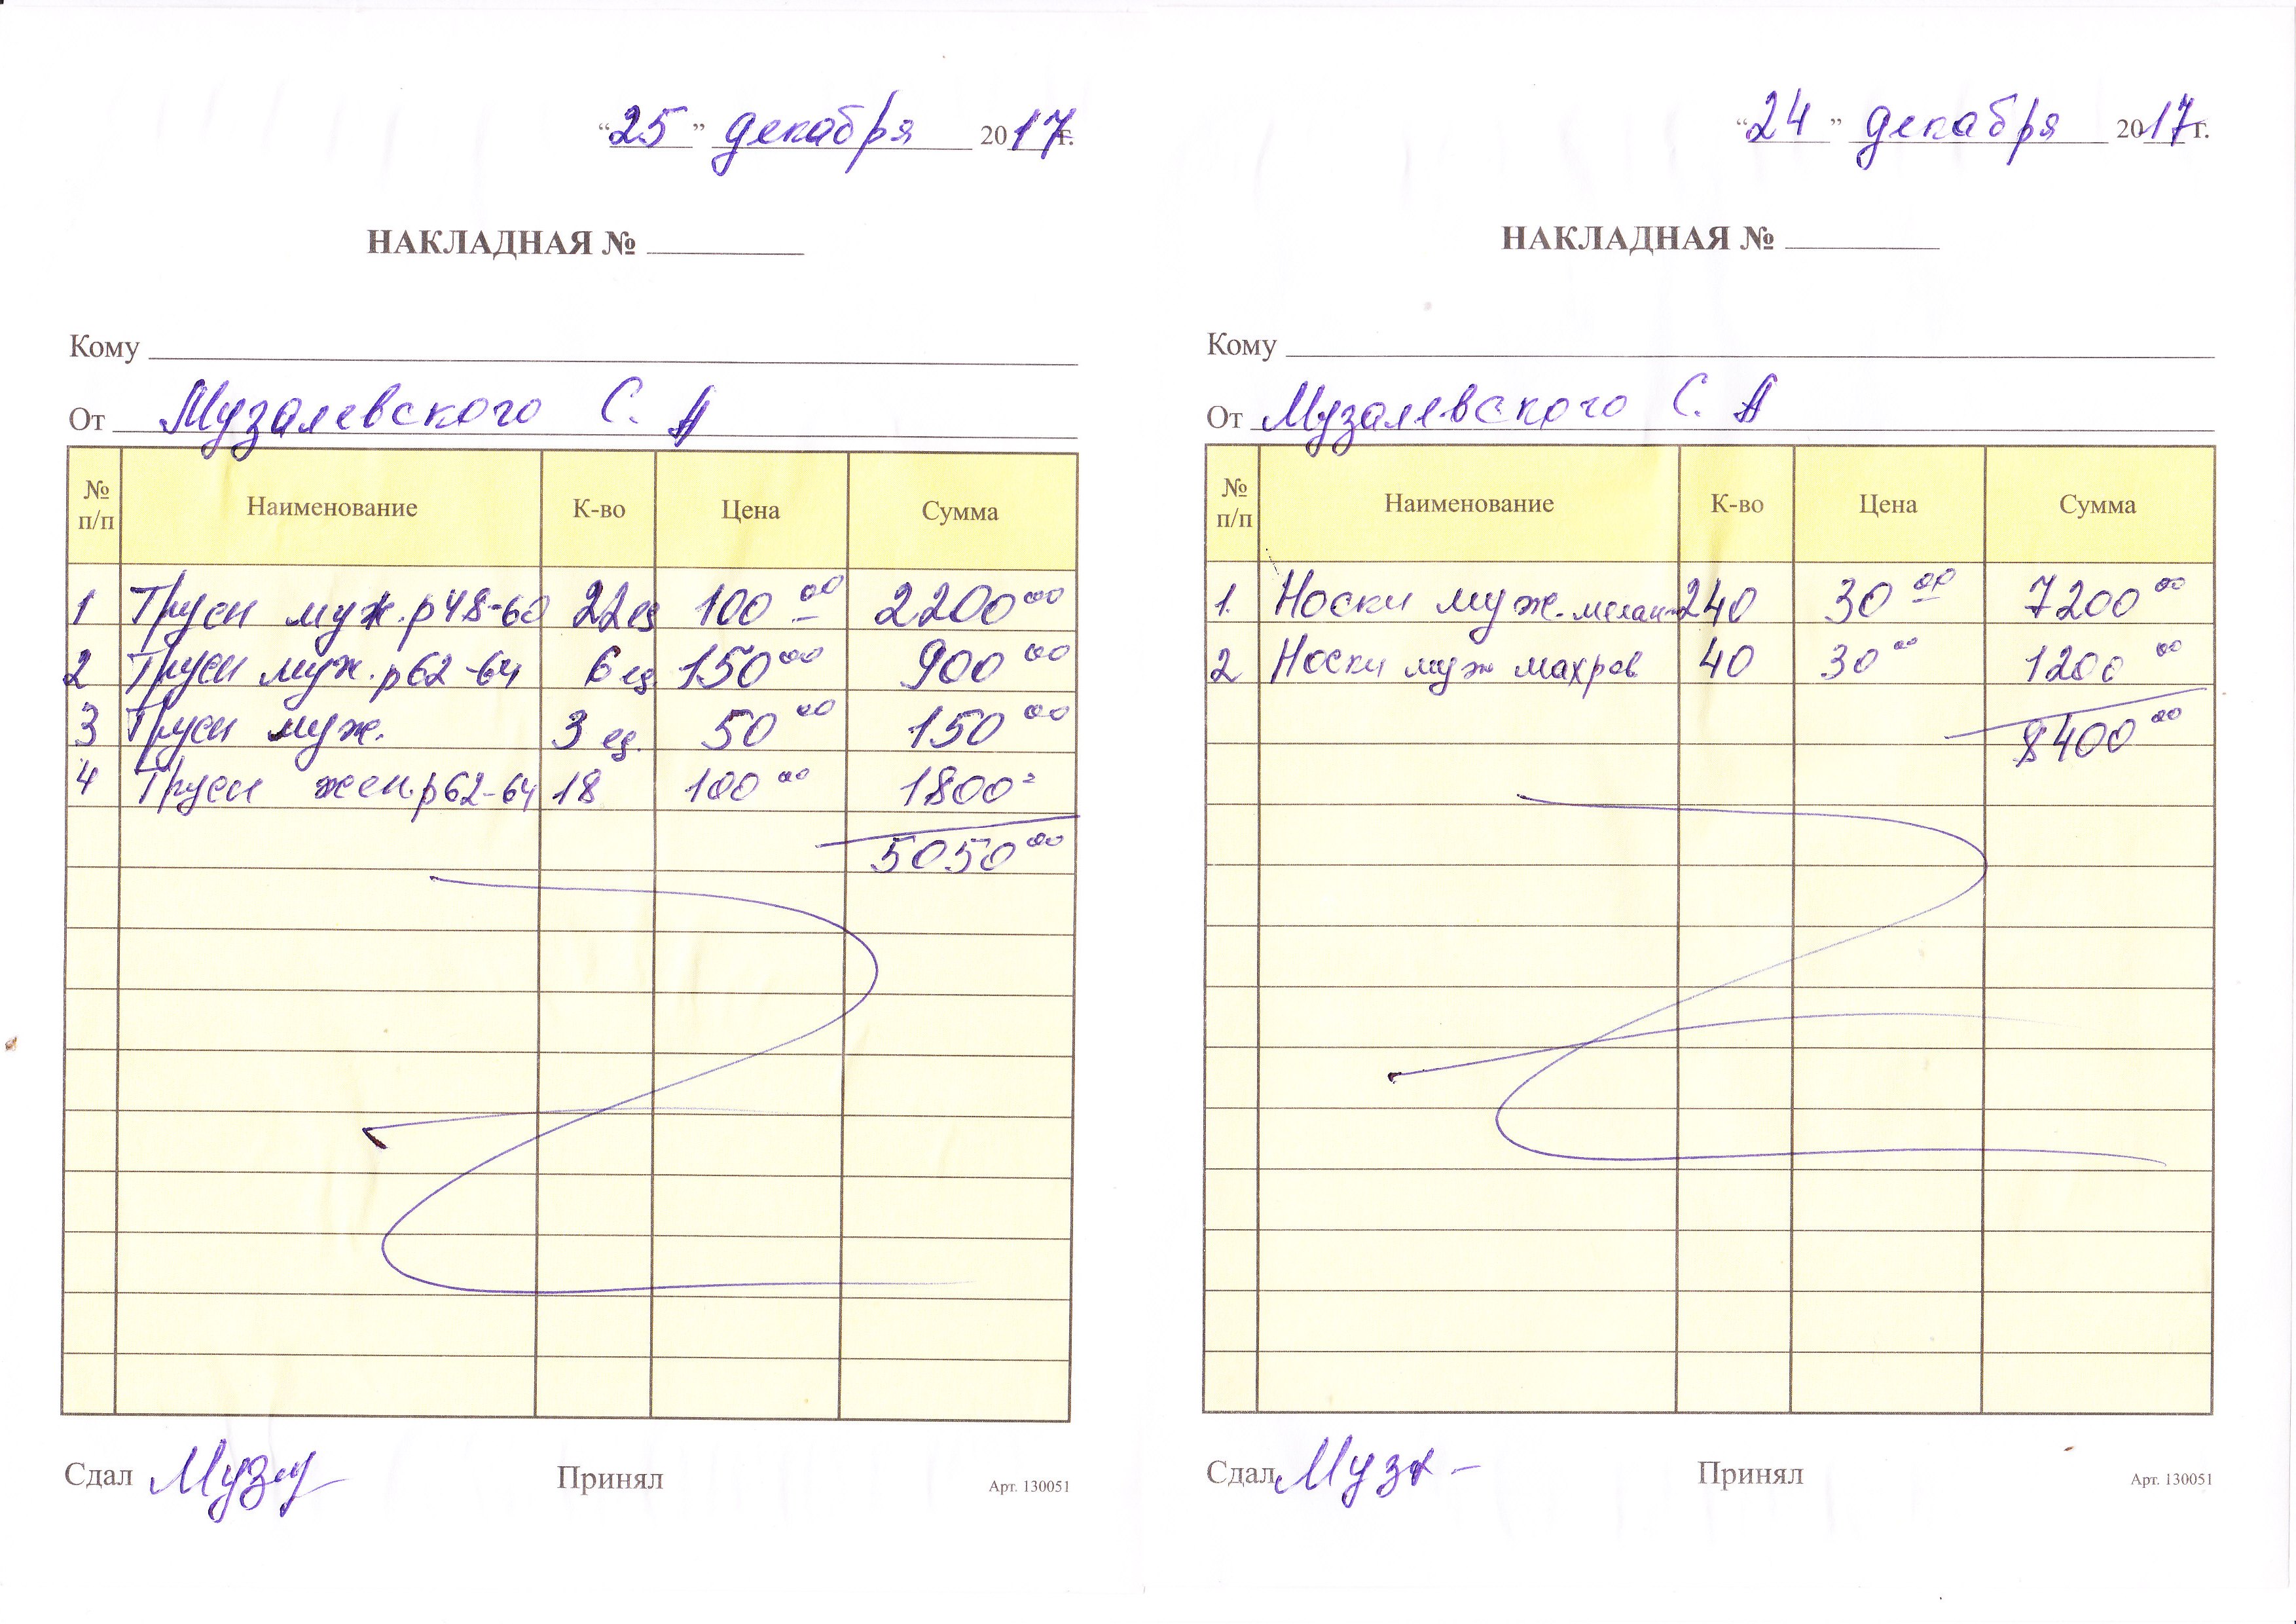 “25” декабря 2017г.
НАКЛАДНАЯ №
Кому
От Музалевского С. А
№ п/п Наименование К-во Цена Сумма
1 Трусы муж. р48-60 22ед 100 00 2200 00
2 Трусы муж. р62-64 6 ед 150 00 900 00
3 Трусы муж. 3 ед. 50 00 150 00
4 Трусы жен. р62-64 18 100 00 1800
5050 00
Сдал Принял Арт. 130051
“24” декабря 2017г.
НАКЛАДНАЯ №
Кому
От Музалевского С. А
№ п/п Наименование К-во Цена Сумма
1. Носки муж. 240 30 00 7200 00
2 Носки муж махров 40 30 00 1200 00
8400 00
Сдал Принял Арт. 130051